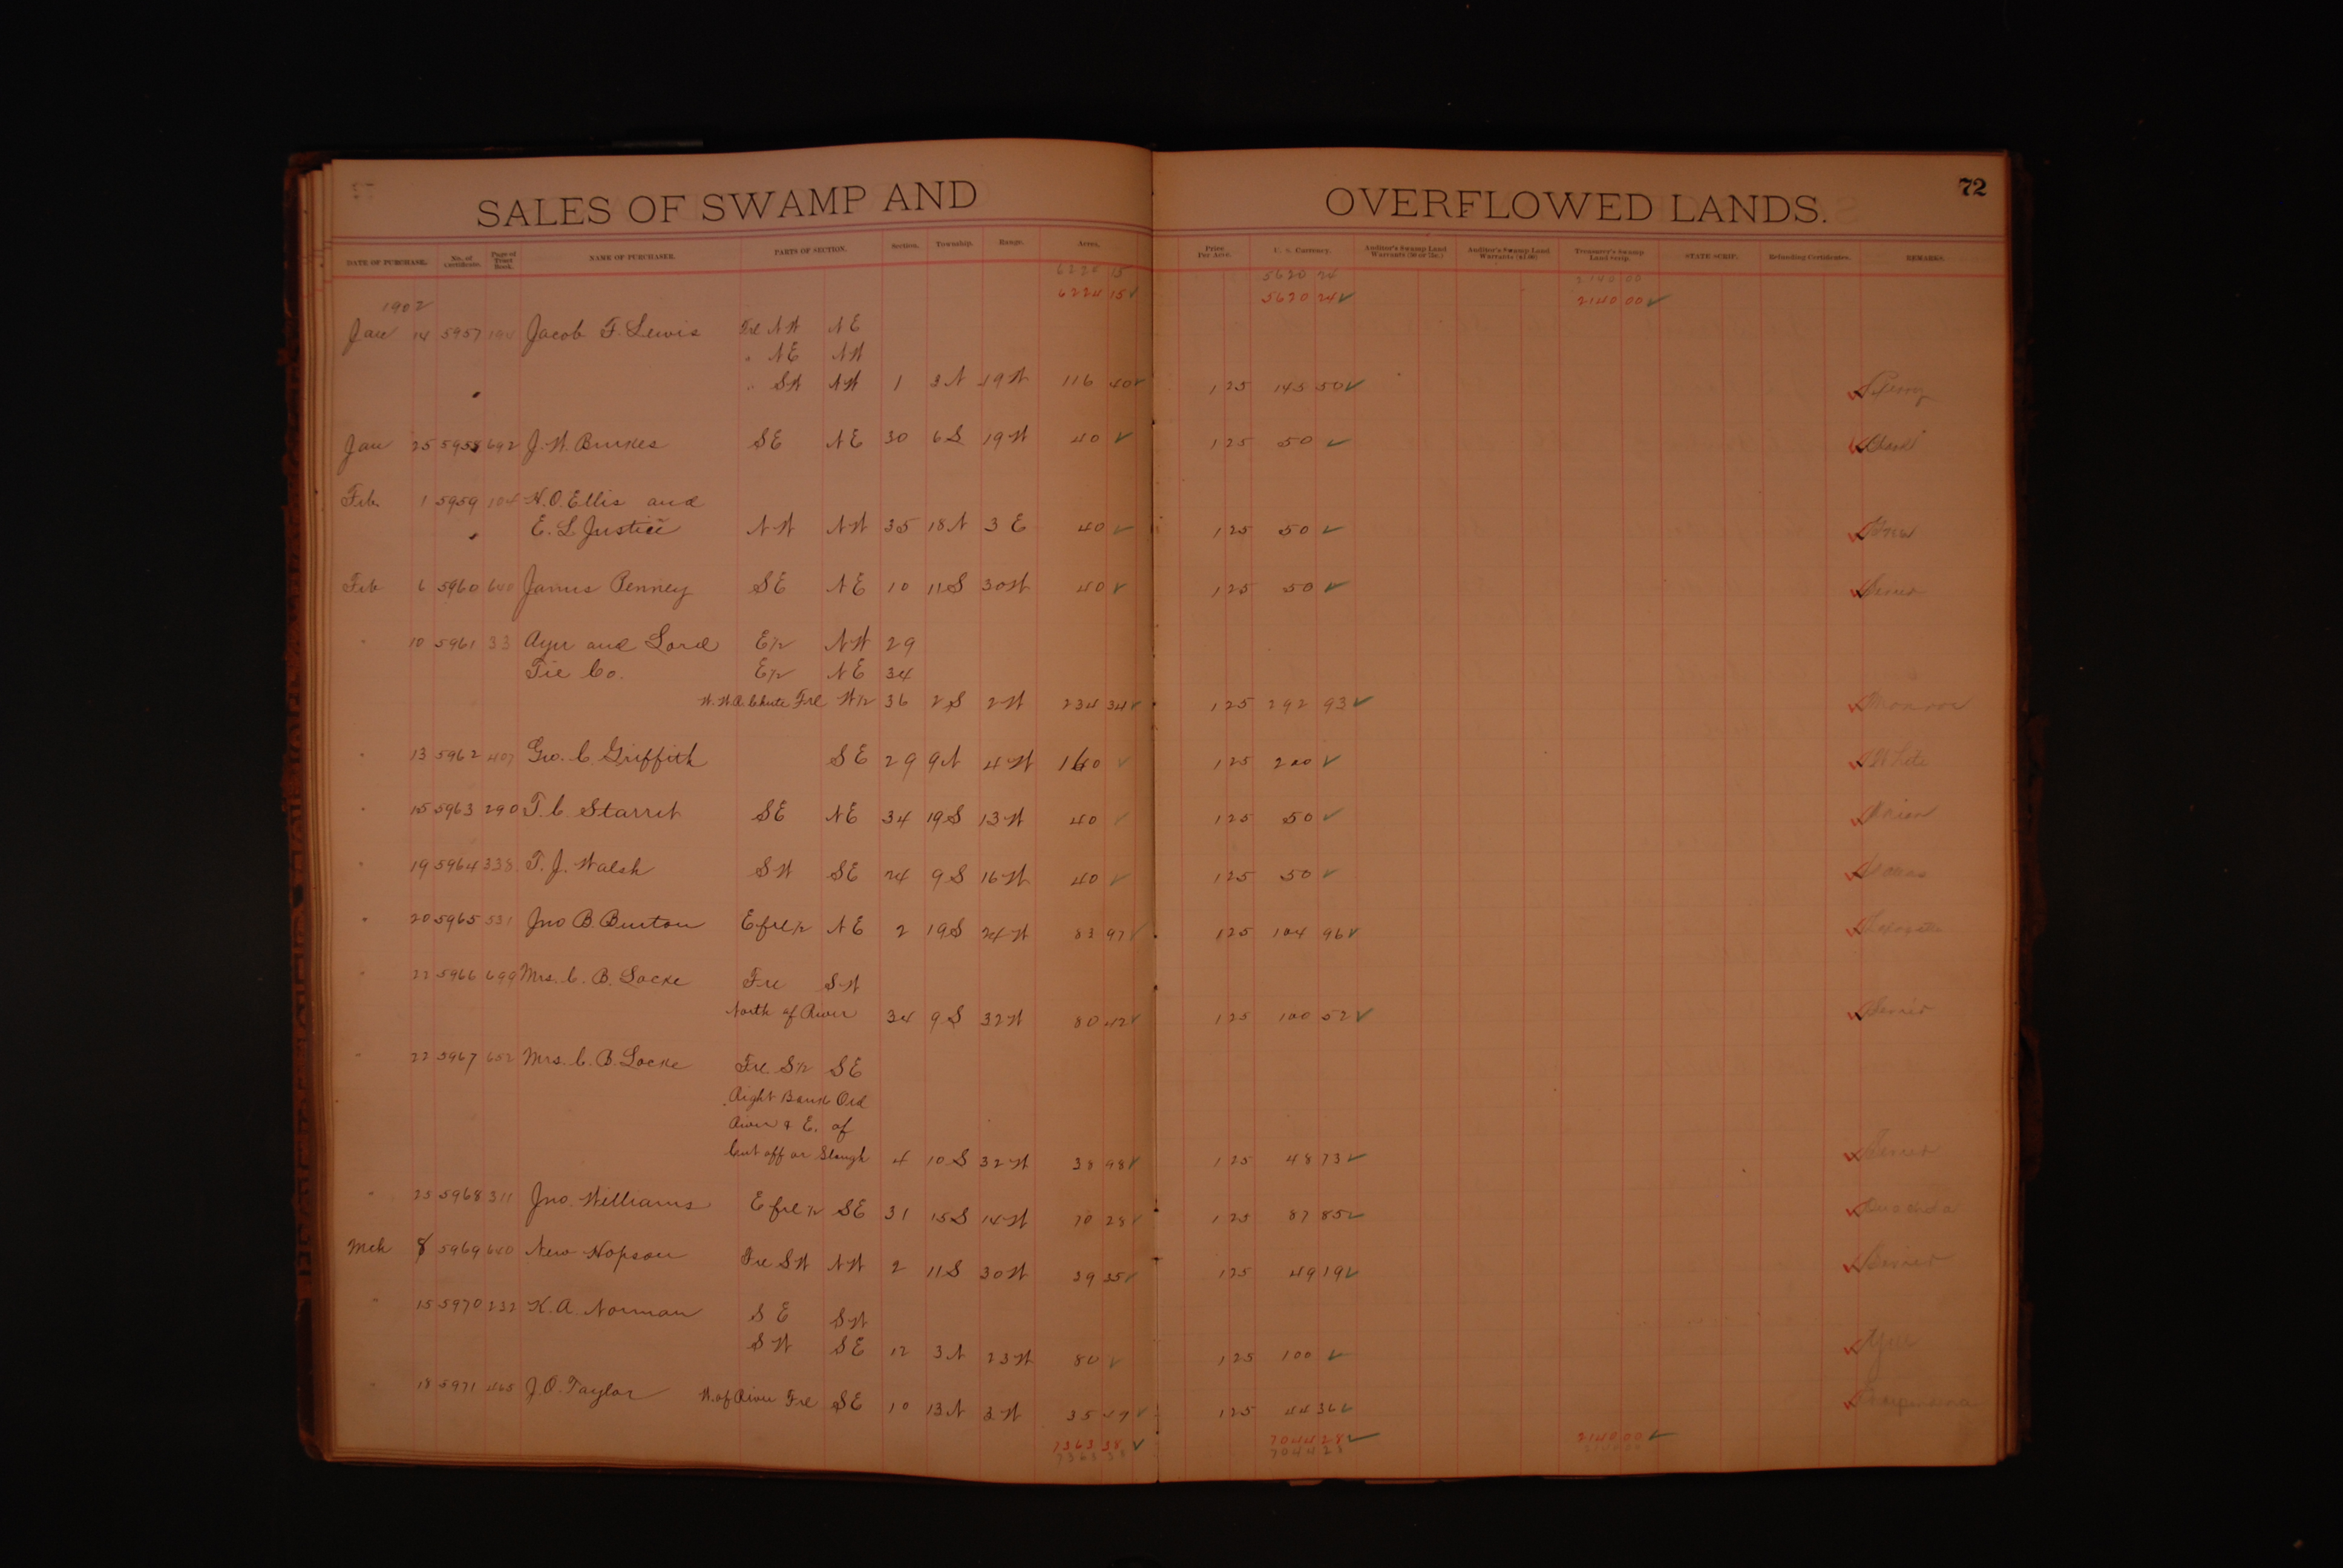 SALES OF SWAMP AND OVERFLOWED LANDS. 72
DATE OF PURCHASE. No. of Certificate. Page of Tract Book. NAME OF PURCHASER. PARTS OF SECTION. Section. Township. Range. Acres. Price Per Acre. U. S. Currency. Auditor's Swamp Land Warrants (50 or 75c.) Auditor's Swamp Land Warrants ($1.00) Treasurer's Swamp Land Scrip. STATE SCRIP. Refunding Certificates. REMARKS.
5620 24 2140 00
1902 6224 15 ✓ 5620 24 ✓ 2140 00 ✓
Jan 14 5957 194 Jacob F. Lewis Frl NW NE
" NE NW
" SW NW 1 3N 19W 116 40 ✓ 1 25 145 50 ✓ Perry
Jan 25 5958 692 J. W. Burkes SE NE 30 6S 19W 40 ✓ 1 25 50 ✓
Feb. 1 5959 104 W. O. Ellis and
E. L Justice NW NW 35 18N 3 E 40 ✓ 1 25 50 ✓
Feb 6 5960 640 James Penney SE NE 10 11S 30W 40 ✓ 1 25 50 ✓ Sevier
" 10 5961 33 Ayer and Lord E½ NW 29
Tie Co. E½ NE 34
W. W.R. Chute Frl W½ 36 2 S 2W 234 34 ✓ 1 25 292 93 ✓ Monroe
" 13 5962 407 Geo. C. Griffith SE 29 9N 4W 160 ✓ 1 25 200 ✓ White
" 15 5963 290 T. C. Starrit SE NE 34 19S 13W 40 ✓ 1 25 50 ✓ Union
" 19 5964 338 T. J. Walsh SW SE 24 9S 16W 40 ✓ 1 25 50 ✓ Dallas
" 20 5965 531 Jno B. Burton E frl ½ NE 2 19S 24W 83 97 ✓ 1 25 104 96 ✓ Lafayette
" 22 5966 699 Mrs. C. B. Locke Frl SW
North of River 34 9 S 32W 80 42 ✓ 1 25 100 52 ✓ Sevier
" 22 5967 652 Mrs. C. B. Locke Frl. S½ SE
Right Bank Old
River & E. of
Cut off or Slough 4 10 S 32W 38 98 ✓ 1 25 48 73 ✓ Sevier
" 25 5968 311 Jno. Williams E frl ½ SE 31 15S 14W 70 28 ✓ 1 25 87 85 ✓ Ouachita
Mch 8 5969 640 New Hopson Frl SW NW 2 11S 30W 39 35 ✓ 1 25 49 19 ✓ Sevier
" 15 5970 232 K. A. Norman S E SW
SW SE 12 3N 23W 80 ✓ 1 25 100 ✓ Yell
" 18 5971 465 J. O. Taylor W. of River Frl SE 10 13N 3W 35 49 ✓ 1 25 44 36 ✓ Independence
7363 38 ✓ 7044 28 ✓ 2140 00 ✓
7363 38 7044 28